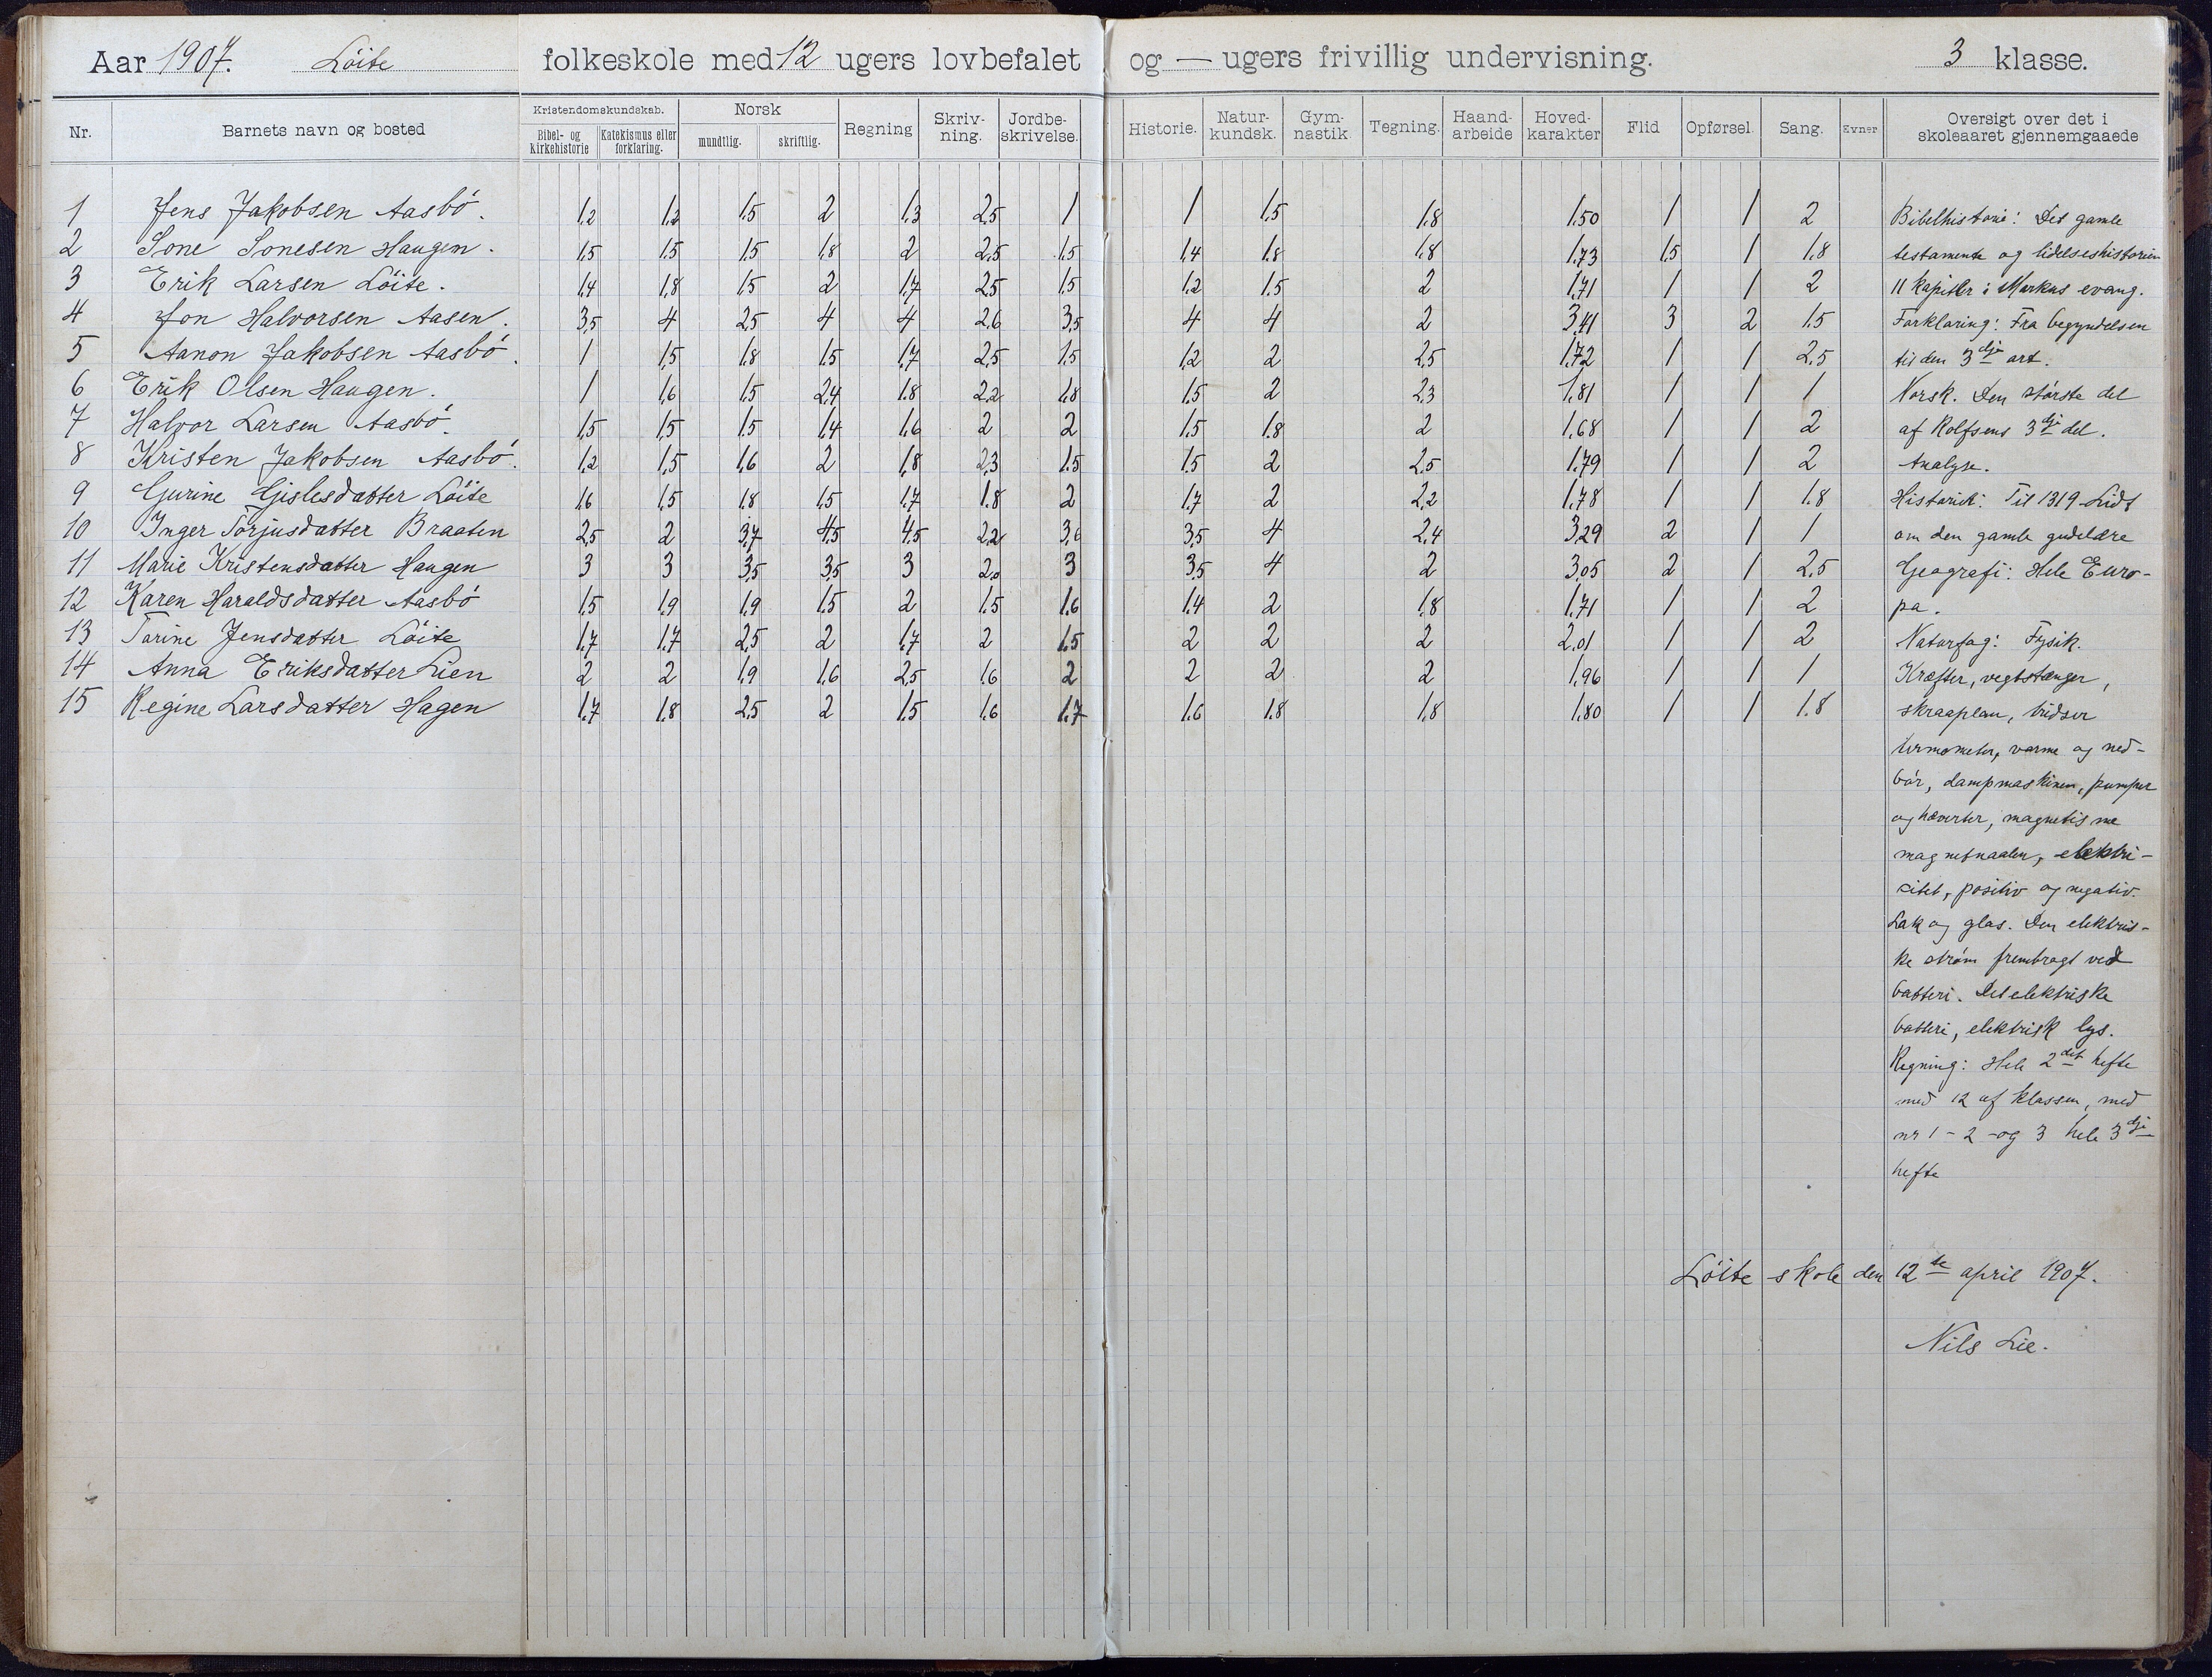 Aar 1907. Löite folkeskole med 12 ugers lovbefalet og — ugers frivillig undervisning. 3 klasse.
Nr. Barnets navn og bosted Kristendomskundskab. Bibel- og kirkehistorie Katekismus eller forklaring. Norsk mundtlig. skriftlig. Regning Skriv- ning. Jordbe- skrivelse. Historie. Natur- kundsk. Gym- nastik Tegning. Haand- arbeide Hoved- karakter Flid Opførsel. Sang. Evner Oversigt over det i skoleaaret gjennemgaaede
1 Jens Jakobsen Aasbö. 1,2 1,2 1,5 2 1,3 2,5 1 1 1,5 1,8 1,50 1 1 2
2 Sone Sonesen Haugen. 1,5 1,5 1,5 1,8 2 2,5 1,5 1,4 1,8 1,8 1,73 1,5 1 1,8
3 Erik Larsen Löite. 1,4 1,8 1,5 2 1,7 2,5 1,5 1,2 1,5 2 1,71 1 1 2
4 Jon Halvorsen Aasen. 3,5 4 2,5 4 4 2,6 3,5 4 4 2 3,41 3 2 1,5
5 Aanon Jakobsen Aasbö. 1 1,5 1,8 1,5 1,7 2,5 1,5 1,2 2 2,5 1,72 1 1 2,5
6 Erik Olsen Haugen. 1 1,6 1,5 2,4 1,8 2,2 1,8 1,5 2 2,3 1,81 1 1 1
7 Halvor Larsen Aasbö. 1,5 1,5 1,5 1,4 1,6 2 2 1,5 1,8 2 1,68 1 1 2
8 Kristen Jakobsen Aasbö. 1,2 1,5 1,6 2 1,8 2,3 1,5 1,5 2 2,5 1,79 1 1 2
9 Gurine Gislesdatter Löite 1,6 1,5 1,8 1,5 1,7 1,8 2 1,7 2 2,2 1,78 1 1 1,8
10 Inger Torjusdatter Braaten 2,5 2 3,7 4,5 4,5 2,2 3,6 3,5 4 2,4 3,29 2 1 1
11 Marie Kristensdatter Haugen 3 3 3,5 3,5 3 2,0 3 3,5 4 2 3,05 2 1 2,5
12 Karen Haraldsdatter Aasbö 1,5 1,9 1,9 1,5 2 1,5 1,6 1,4 2 1,8 1,71 1 1 2
13 Torine Jensdatter Löite 1,7 1,7 2,5 2 1,7 2 1,5 2 2 2 2,01 1 1 2
14 Anna Eriksdatter Lien 2 2 1,9 1,6 2,5 1,6 2 2 2 2 1,96 1 1 1
15 Regine Larsdatter Hagen 1,7 1,8 2,5 2 1,5 1,6 1,7 1,6 1,8 1,8 1,80 1 1 1,8
Bibelhistorie: Det gamle
testamente og lidelseshistorien
11 kapitler i Markus evang.
Forklaring: Fra begyndelsen
til den 3dje art.
Norsk. Den störste del
af Rolfsens 3dje del.
Analyse.
Historie: Til 1319 Lidt
om den gamle gudelære
Geografi: Hele Euro-
pa.
Naturfag: Fysik.
Kræfter, vegtstænger,
skraaplan, tridser
termometer, varme og ned-
bör, dampmaskinen, pumper
og hæverter, magnetisme
magnetnaalen, elektri-
citet, positiv og negativ.
Lak og glas. Den elektris-
ke ström frembragt ved
batteri. Det elektriske
batteri, elektrisk lys.
Regning: Hele 2det hefte
med 12 af klassen, med
nr 1 - 2 - og 3 hele 3dje
hefte
Löite skole den 12te april 1907.
Nils Lie.